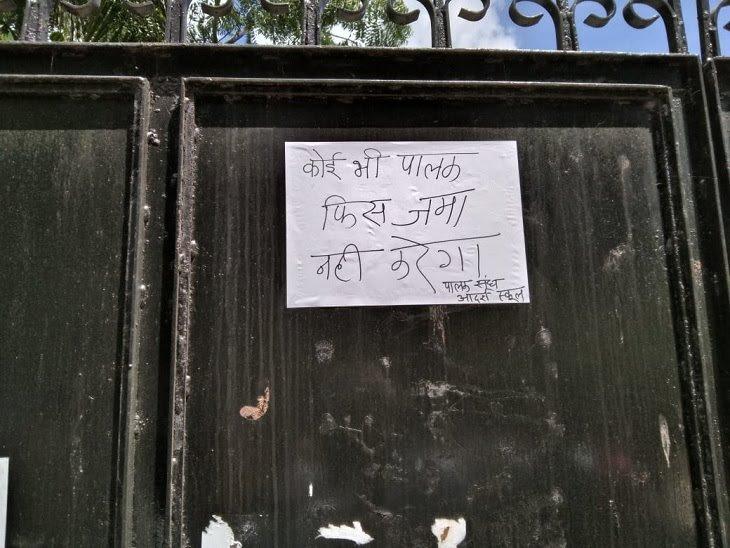 कोई भी पालक
फिस जमा
नही करेगा
पालक संघ
आदर्श स्कूल